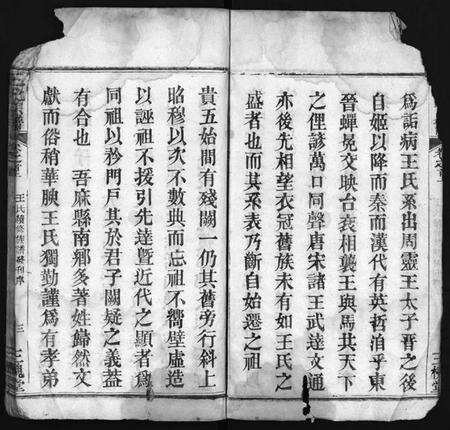 為詬病王氏系出周靈王太子晉之後
自姬以降而秦而漢代有英哲洎乎東
晉蟬冕交映台袞相襲王與馬其天下
之俚諺萬口同聲唐宋諸王武達文通
亦後先相望衣冠舊族未有如王氏之
盛者也而其系表乃斷自始遷之祖
貴五始間有殘闕一仍其舊旁行斜上
昭穆以次不數典而忘祖不嚮壁虛造
以誣祖不援引先達暨近代之顯者為
同祖以矜門戶其於君子闕疑之義蓋
有合也 吾麻縣南鄉多著姓歸然文
獻而俗稍華腴王氏獨勤謹為有孝弟
王氏續修族譜發刊序
三
三槐堂
三槐堂